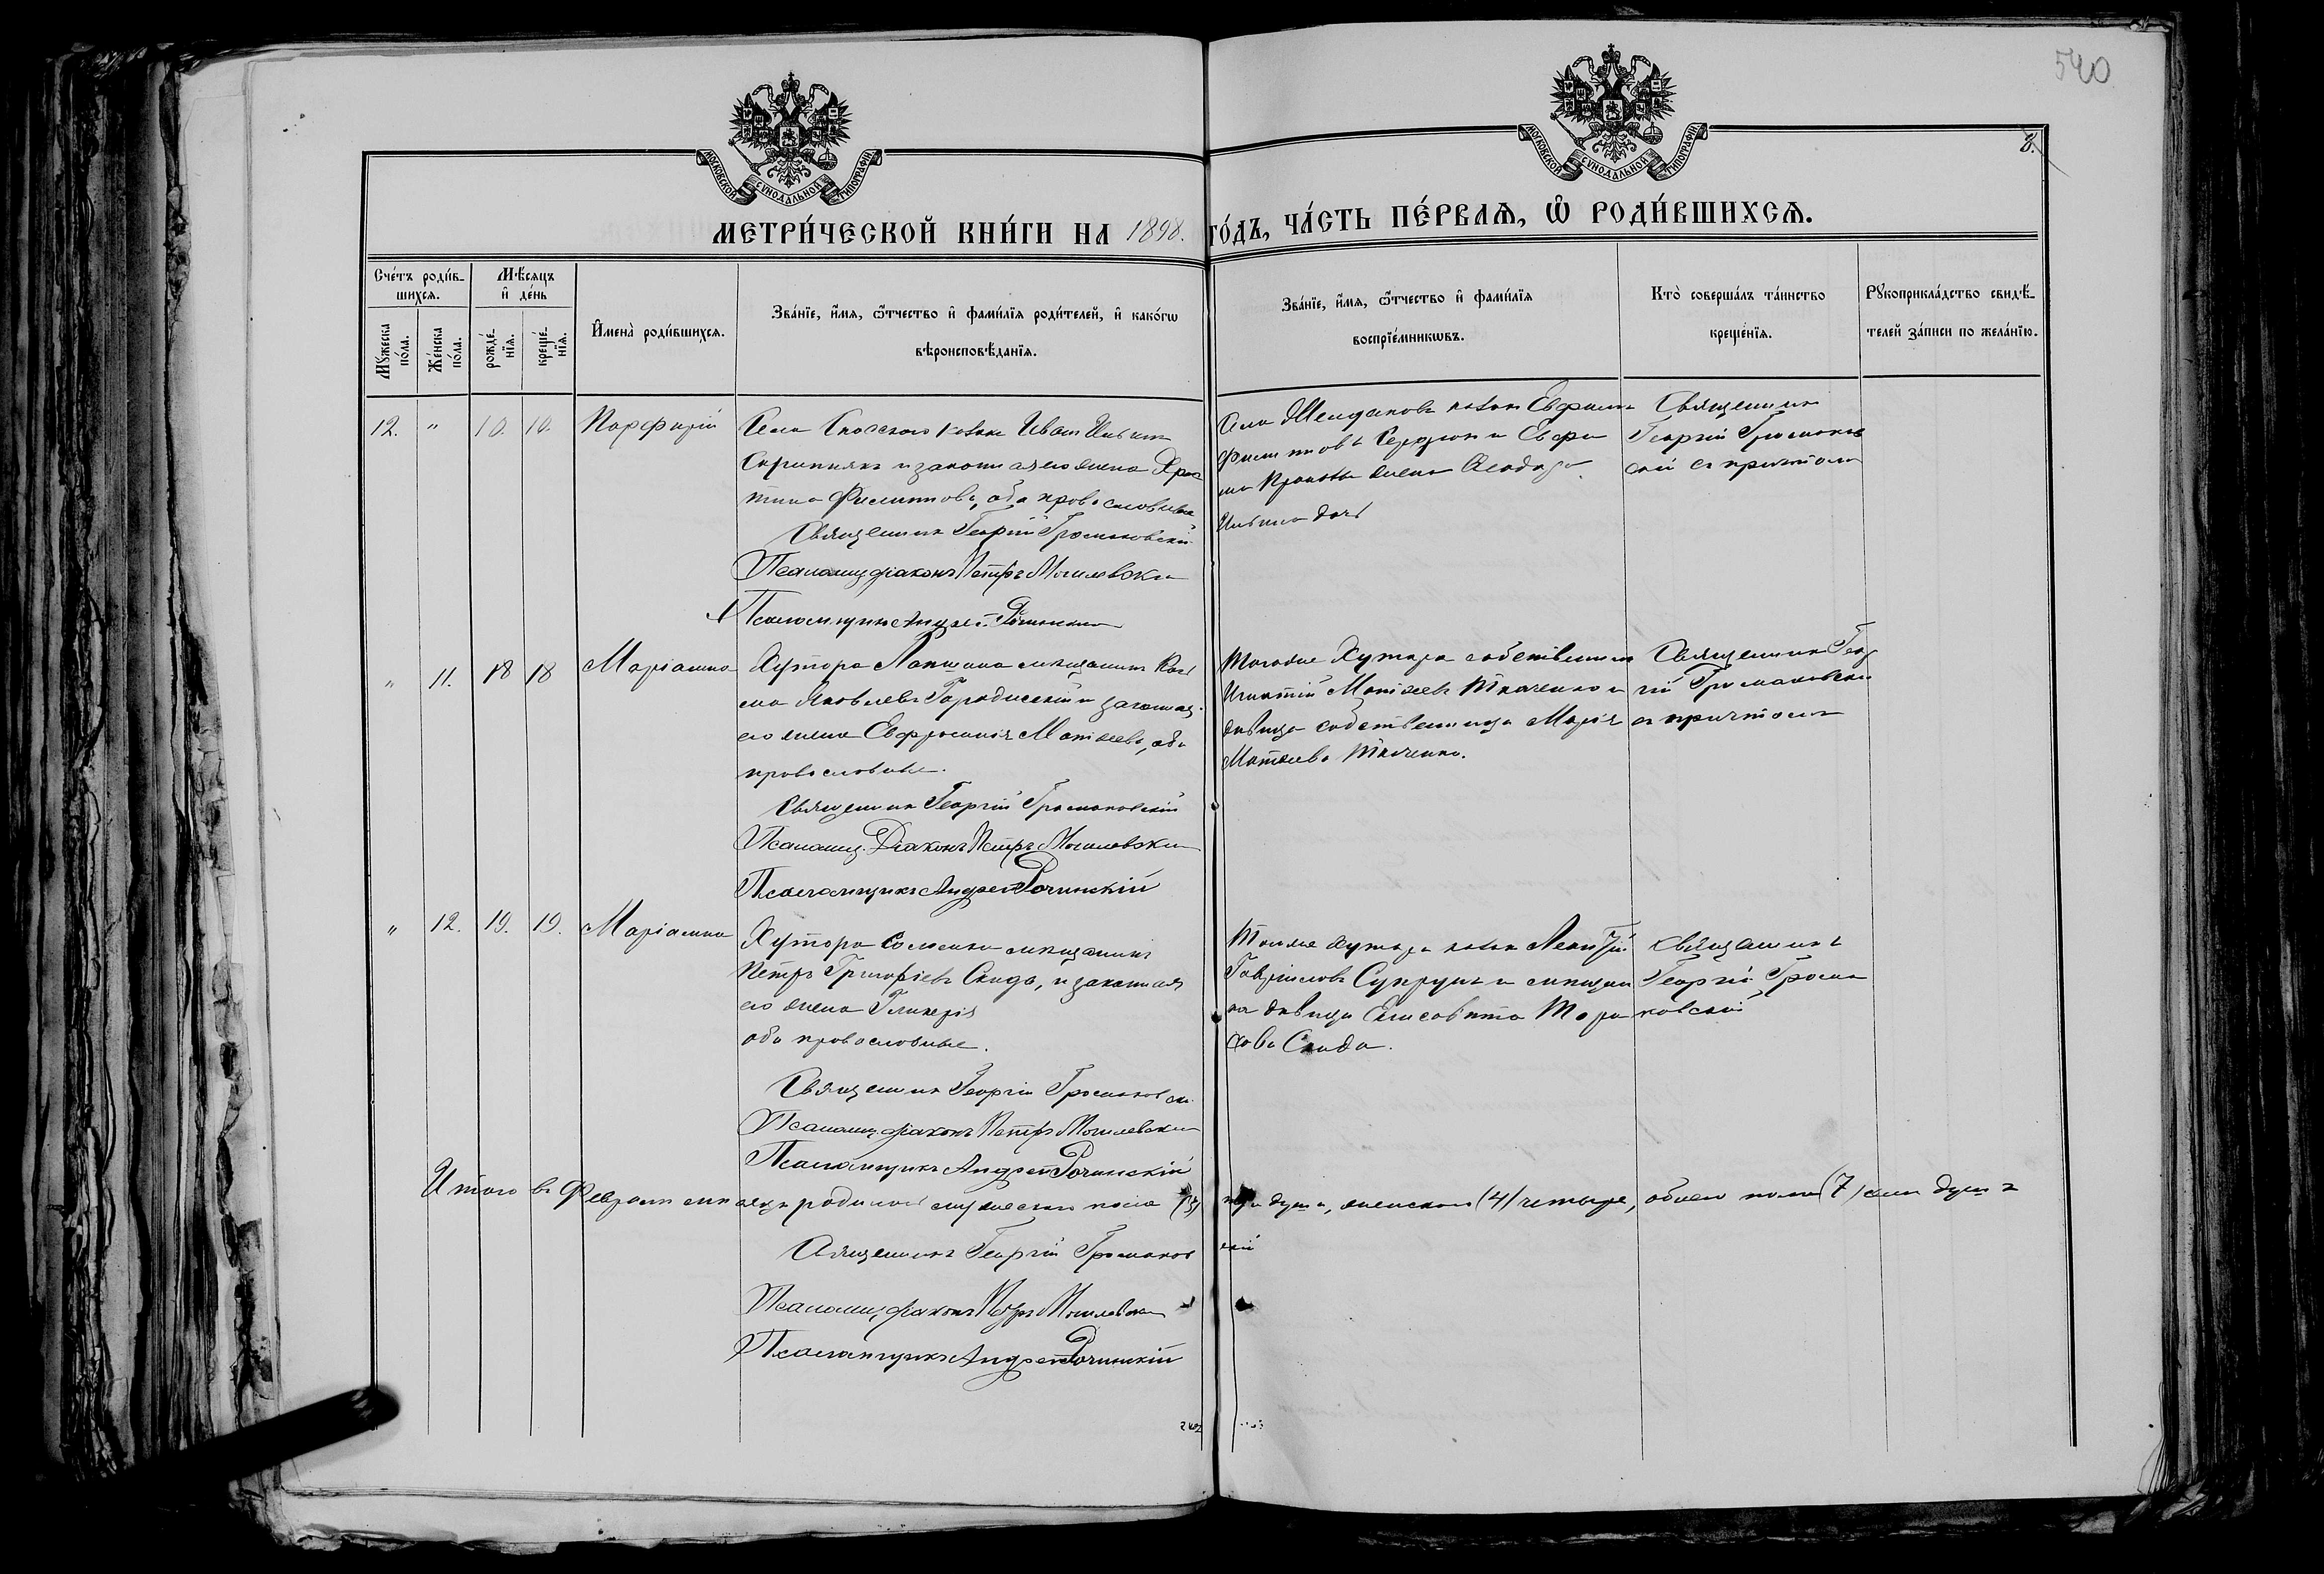 540
8.
МОСКОВСКОЙ СУНОДАЛЬНОЙ ТИПОГРАФІИ
МОСКОВСКОЙ СУНОДАЛЬНОЙ ТИПОГРАФІИ
МЕТРИ́ЧЕСКОЙ КНИ́ГИ НА 1898. ГО́ДЪ, ЧА́СТЬ ПЕ́РВАЯ, Ѡ҆ РОДИ́ВШИХСЯ.
Сче́тъ роди́в-
шихся.
Мѣ́сяцъ
и҆ де́нь
Мꙋ́жеска по́ла.
Же́нска по́ла.
рожде́нїя.
креще́нїя.
И҆мена̀ роди́вшихся.
Зва́нїе, и҆́мя, ѻ҆́тчество и҆ фами́лїя роди́телей, и҆ како́гѡ
вѣроисповѣ́данїя.
Зва́нїе, и҆́мя, ѻ҆́тчество и҆ фами́лїя
воспрїе́мникѡвъ.
Кто̀ соверша́лъ та́инство
креще́нїя.
Рꙋкоприкла́дство свидѣ́-
телей за́писи по жела́нїю.
12. " 10. 10. Парфирій
Села Спасскаго козакъ Иванъ Ильинъ
Скрипникъ и законная его жена Хрис
тина Филиппова, оба православные
Священникъ Георгій Громаковскій
Псаломщ. діаконъ Петръ Могилевскій
Псаломщикъ Андрей
козакъ Евфимъ
Филипповъ и
жена
Ильина дочь
Священникъ
Георгій Громаков
скій съ причтомъ
" 11. 18 18 Маріамна
Хутора мѣщанинъ Козь
ма Яковлевъ Городискій и законная
его жена Евфросинія Матѳеева, оба
православные.
Священникъ Георгій Громаковскій
Псаломщ. Діаконъ Петръ Могилевскій
Псаломщикъ Андрей
Тогоже хутора собственникъ
Игнатій Матѳеевъ Ткаченко и
дѣвица собственница Марія
Матѳеева Ткаченко.
Священникъ Геор
гій Громаковскій
съ причтомъ
" 12. 19. 19. Маріамна
Хутора мѣщанинъ
Петръ Григорьевъ Скида, и законная
его жена Гликерія
оба православные.
Священникъ Георгій Громаковскій
Псаломщ. діаконъ Петръ Могилевскій
Псаломщикъ Андрей
Тогоже хутора козакъ Леонтій
Гавріиловъ Супрунъ и мѣщан
ка дѣвица Елисавета Тара
сова Скида.
Священникъ
Георгій Грома
ковскій
Итого въ Февралѣ мѣсяцѣ родилось мужескаго пола (3) три души, женскаго (4) четыре, обоего пола (7) семь душъ
Священникъ Георгій Громаковскій
Псаломщ. діаконъ Петръ Могилевскій
Псаломщикъ Андрей